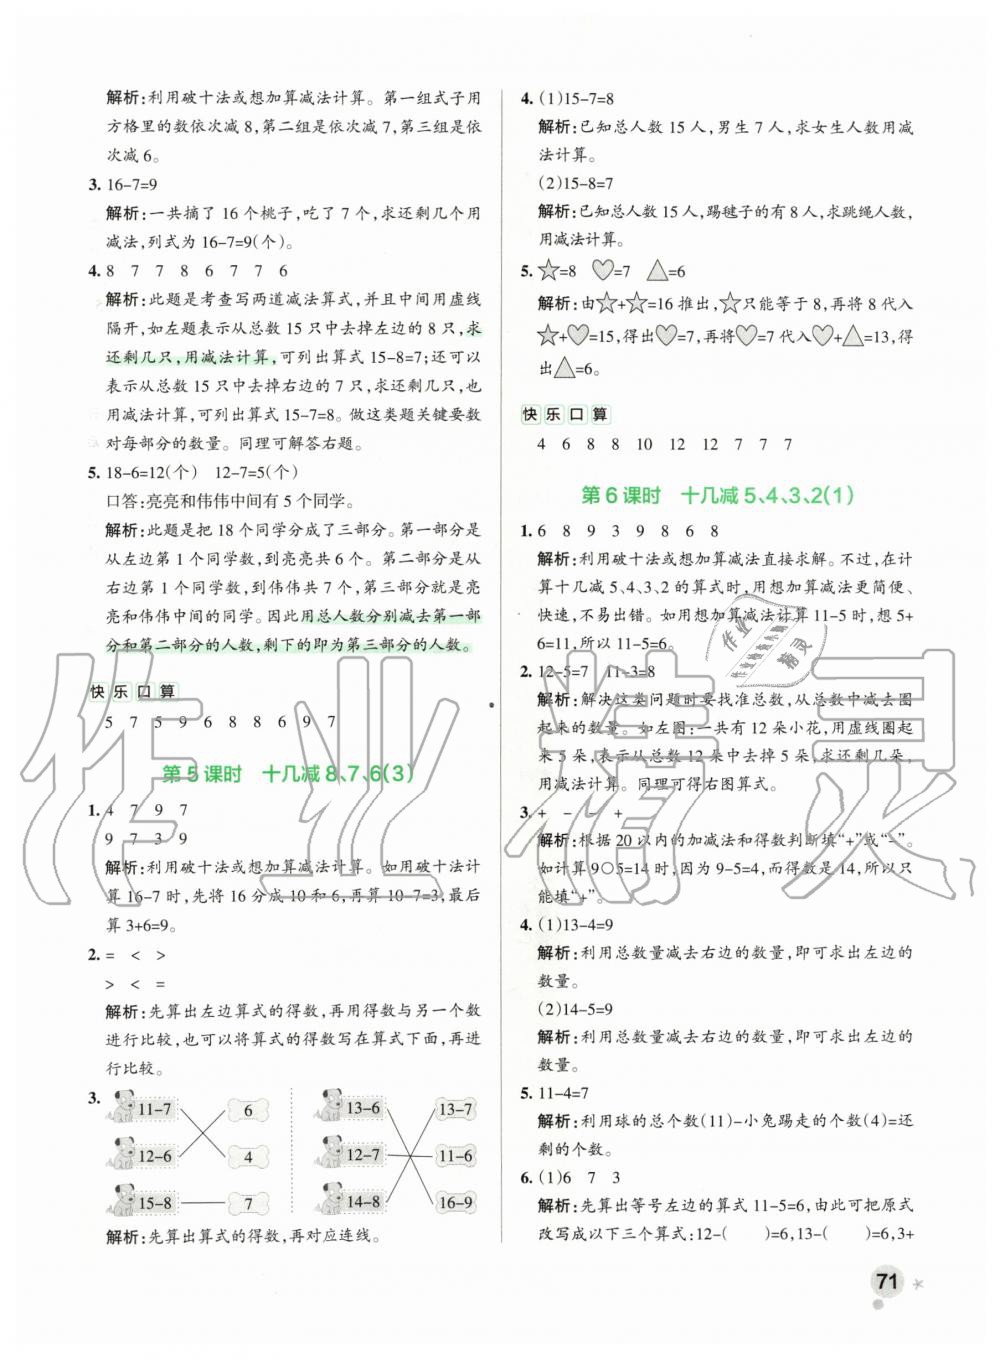 解析:利用破十法或想加算减法计算。第一组式子用
方格里的数依次减 8,第二组是依次减 7,第三组是依
次减 6。
3. 16-7=9
解析:一共摘了 16 个桃子,吃了 7 个,求还剩几个用
减法,列式为 16-7=9(个)。
4. 8 7 7 8 6 7 7 6
解析:此题是考查写两道减法算式,并且中间用虚线
隔开,如左题表示从总数 15 只中去掉左边的 8 只,求
还剩几只,用减法计算,可列出算式 15-8=7;还可以
表示从总数 15 只中去掉右边的 7 只,求还剩几只,也
用减法计算,可列出算式 15-7=8。做这类题关键要数
对每部分的数量。同理可解答右题。
5. 18-6=12(个) 12-7=5(个)
口答:亮亮和伟伟中间有 5 个同学。
解析:此题是把 18 个同学分成了三部分。第一部分是
从左边第 1 个同学数,到亮亮共 6 个。第二部分是从
右边第 1 个同学数,到伟伟共 7 个,第三部分就是亮
亮和伟伟中间的同学。因此用总人数分别减去第一部
分和第二部分的人数,剩下的即为第三部分的人数。
快乐口算
5 7 5 9 6 8 8 6 9 7
第 5 课时 十几减 8、7、6(3)
1. 4 7 9 7
9 7 3 9
解析:利用破十法或想加算减法计算。如用破十法计
算 16-7 时,先将 16 分成 10 和 6,再算 10-7=3,最后
算 3+6=9。
2. = < >
> < =
解析:先算出左边算式的得数,再用得数与另一个数
进行比较,也可以将算式的得数写在算式下面,再进
行比较。
3.
11-7 6 13-6 13-7
12-6 4 12-7 11-6
15-8 7 14-8 16-9
解析:先算出算式的得数,再对应连线。
4. (1)15-7=8
解析:已知总人数 15 人,男生 7 人,求女生人数用减
法计算。
(2)15-8=7
解析:已知总人数 15 人,踢毽子的有 8 人,求跳绳人数,
用减法计算。
5. ☆=8 ♡=7 △=6
解析:由☆+☆=16 推出,☆只能等于 8,再将 8 代入
☆+♡=15,得出♡=7,再将♡=7 代入♡+△=13,得
出△=6。
快乐口算
4 6 8 8 10 12 12 7 7 7
第 6 课时 十几减 5、4、3、2(1)
1. 6 8 9 3 9 8 6 8
解析:利用破十法或想加算减法直接求解。不过,在计
算十几减 5、4、3、2 的算式时,用想加算减法更简便、
快速,不易出错。如用想加算减法计算 11-5 时,想 5+
6=11,所以 11-5=6。
2. 12-5=7 11-3=8
解析:解决这类问题时要找准总数,从总数中减去圈
起来的数量。如左图:一共有 12 朵小花,用虚线圈起
来 5 朵,表示从总数 12 朵中去掉 5 朵,求还剩几朵,
用减法计算。同理可得右图算式。
3. + - - +
解析:根据 20 以内的加减法和得数判断填“+”或“-”。
如计算 9○5=14 时,因为 9-5=4,而得数是 14,所以只
能填“+”。
4. (1)13-4=9
解析:利用总数量减去右边的数量,即可求出左边的
数量。
(2)14-5=9
解析:利用总数量减去右边的数量,即可求出左边的
数量。
5. 11-4=7
解析:利用球的总个数(11)-小兔踢走的个数(4)=还
剩的个数。
6. (1)6 7 3
解析:先算出等号左边的算式 11-5=6,由此可把原式
改写成以下三个算式:12-( )=6,13-( )=6,3+
71
作业精灵